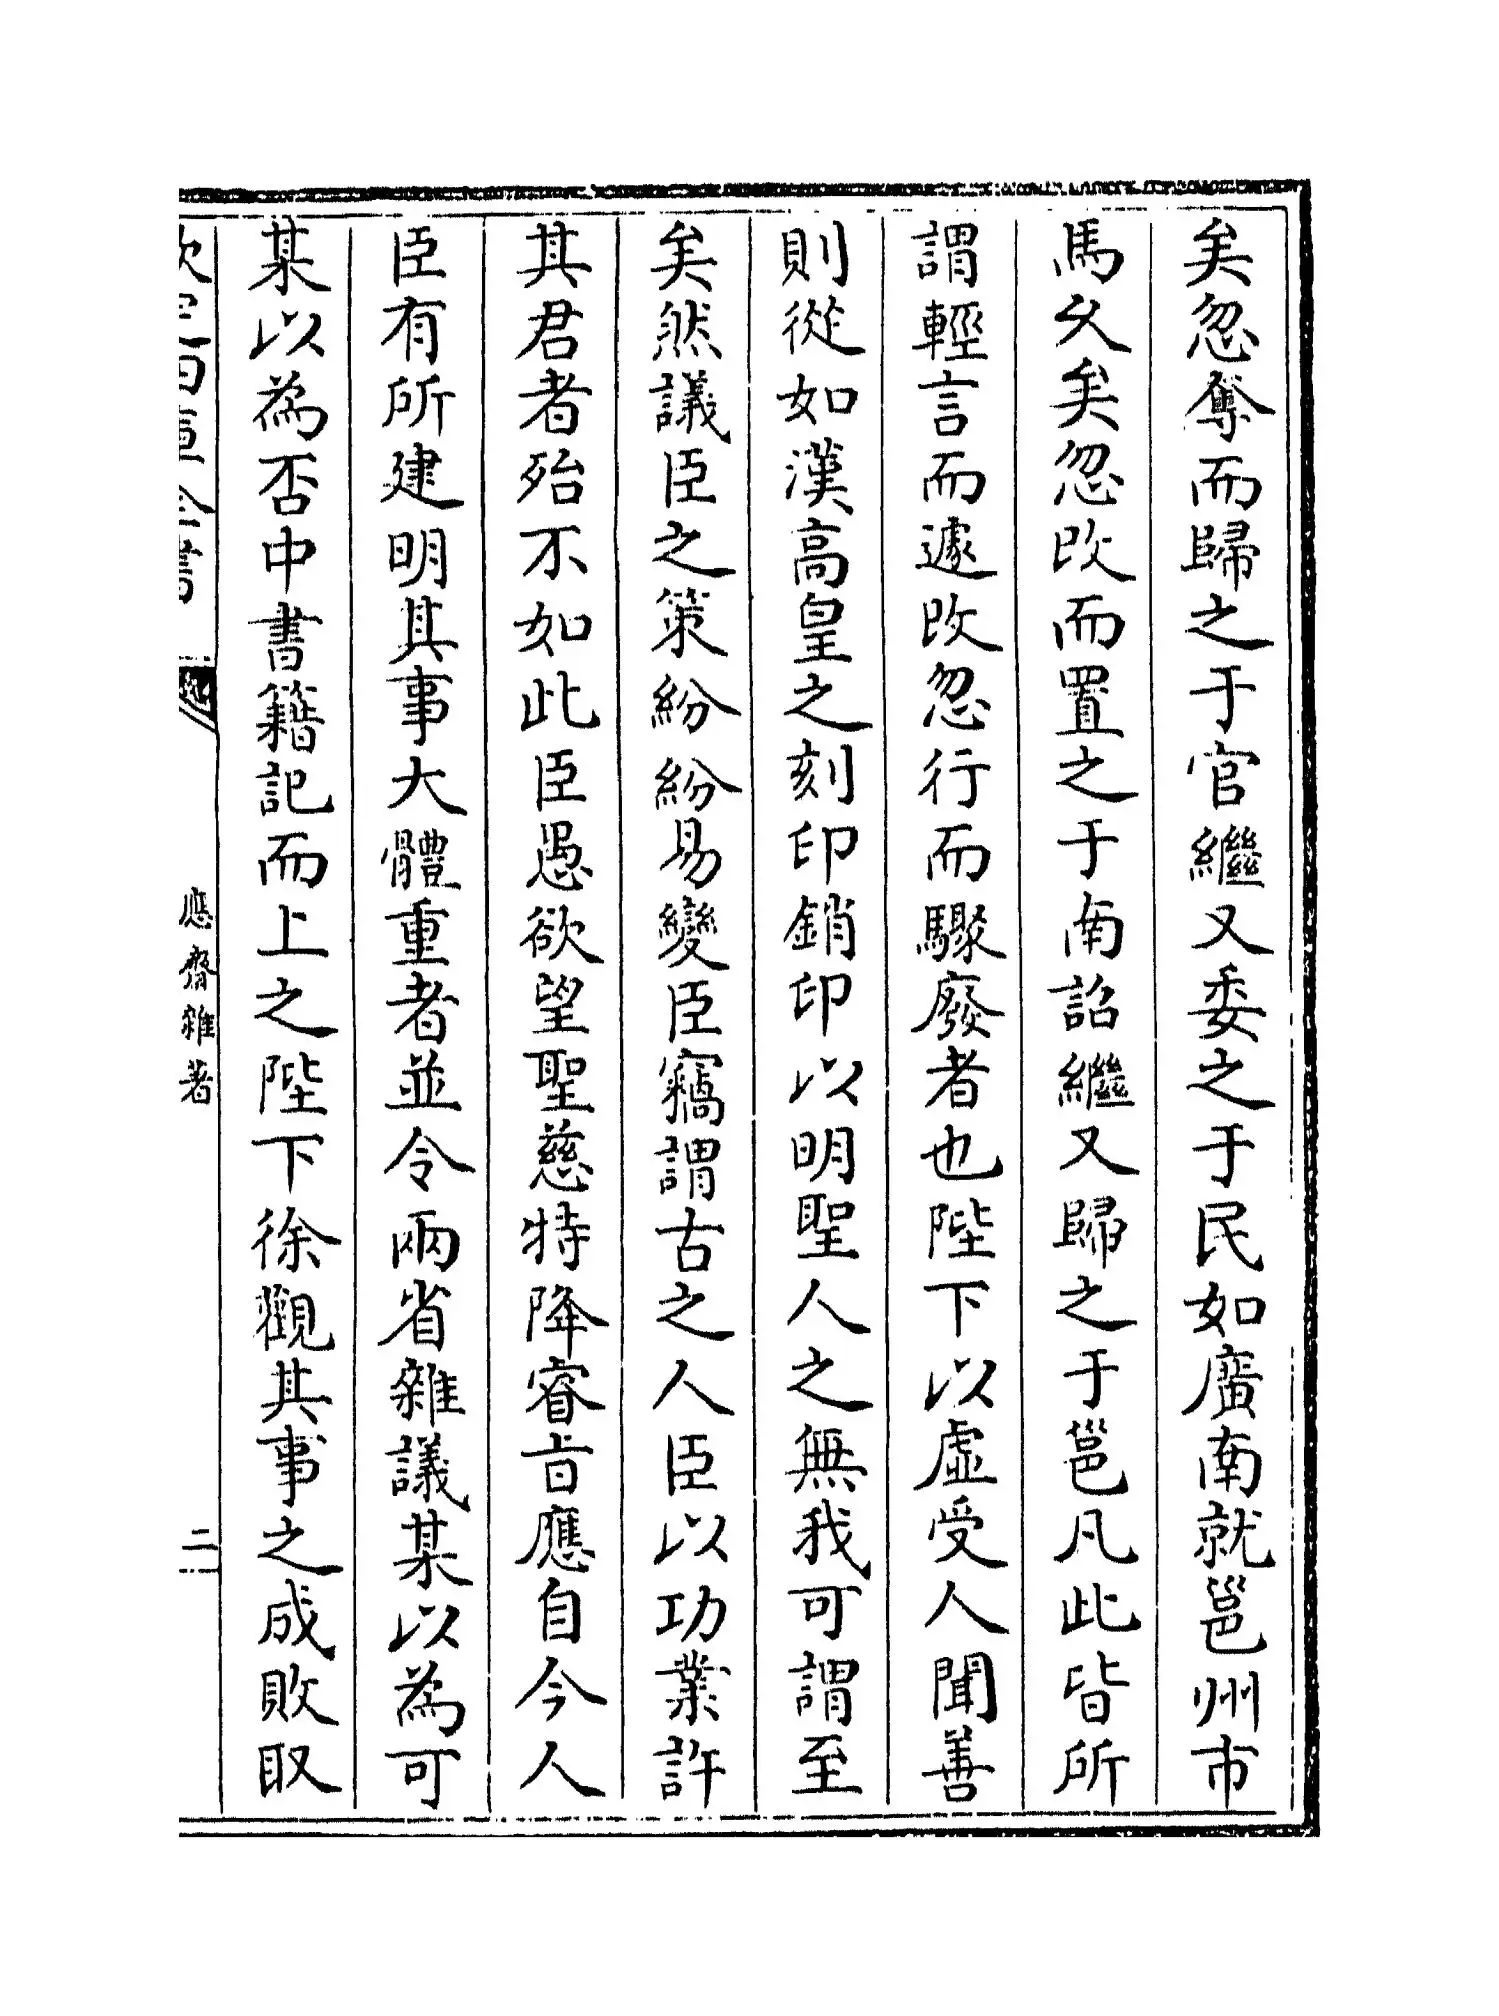 矣忽奪而歸之于官繼又委之于民如廣南就邕州市
馬久矣忽改而置之于南詔繼又歸之于邕凡此皆所
謂輕言而遽改忽行而驟廢者也陛下以虛受人聞善
則從如漢高皇之刻印銷印以明聖人之無我可謂至
矣然議臣之策紛紛易變臣竊謂古之人臣以功業許
其君者殆不如此臣愚欲望聖慈特降睿旨應自今人
臣有所建明其事大體重者並令兩省雜議某以為可
某以為否中書籍記而上之陛下徐觀其事之成敗取
欽定四庫全書
應齋雜著
二